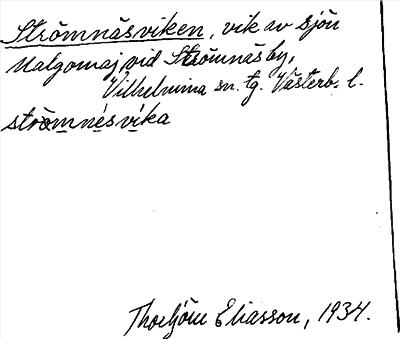 Strömnäsviken, vik av sjön
Malgomaj, vid Strömnäs by,
Vilhelmina sn. tg. Västerb. l.
strömnésvíka
Thorbjörn Eliasson, 1934.